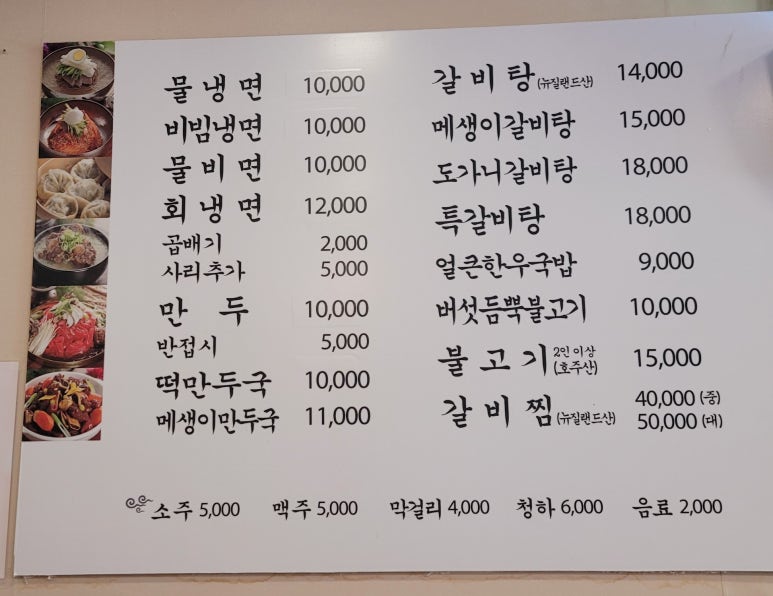 물냉면 10,000
비빔냉면 10,000
물비면 10,000
회냉면 12,000
곱배기 2,000
사리추가 5,000
만두 10,000
반접시 5,000
떡만두국 10,000
메생이만두국 11,000
갈비탕(뉴질랜드산) 14,000
메생이갈비탕 15,000
도가니갈비탕 18,000
특갈비탕 18,000
얼큰한우국밥 9,000
버섯듬뿍불고기 10,000
불고기 2인 이상 (호주산) 15,000
갈비찜(뉴질랜드산) 40,000 (중)
50,000 (대)
소주 5,000 맥주 5,000 막걸리 4,000 청하 6,000 음료 2,000